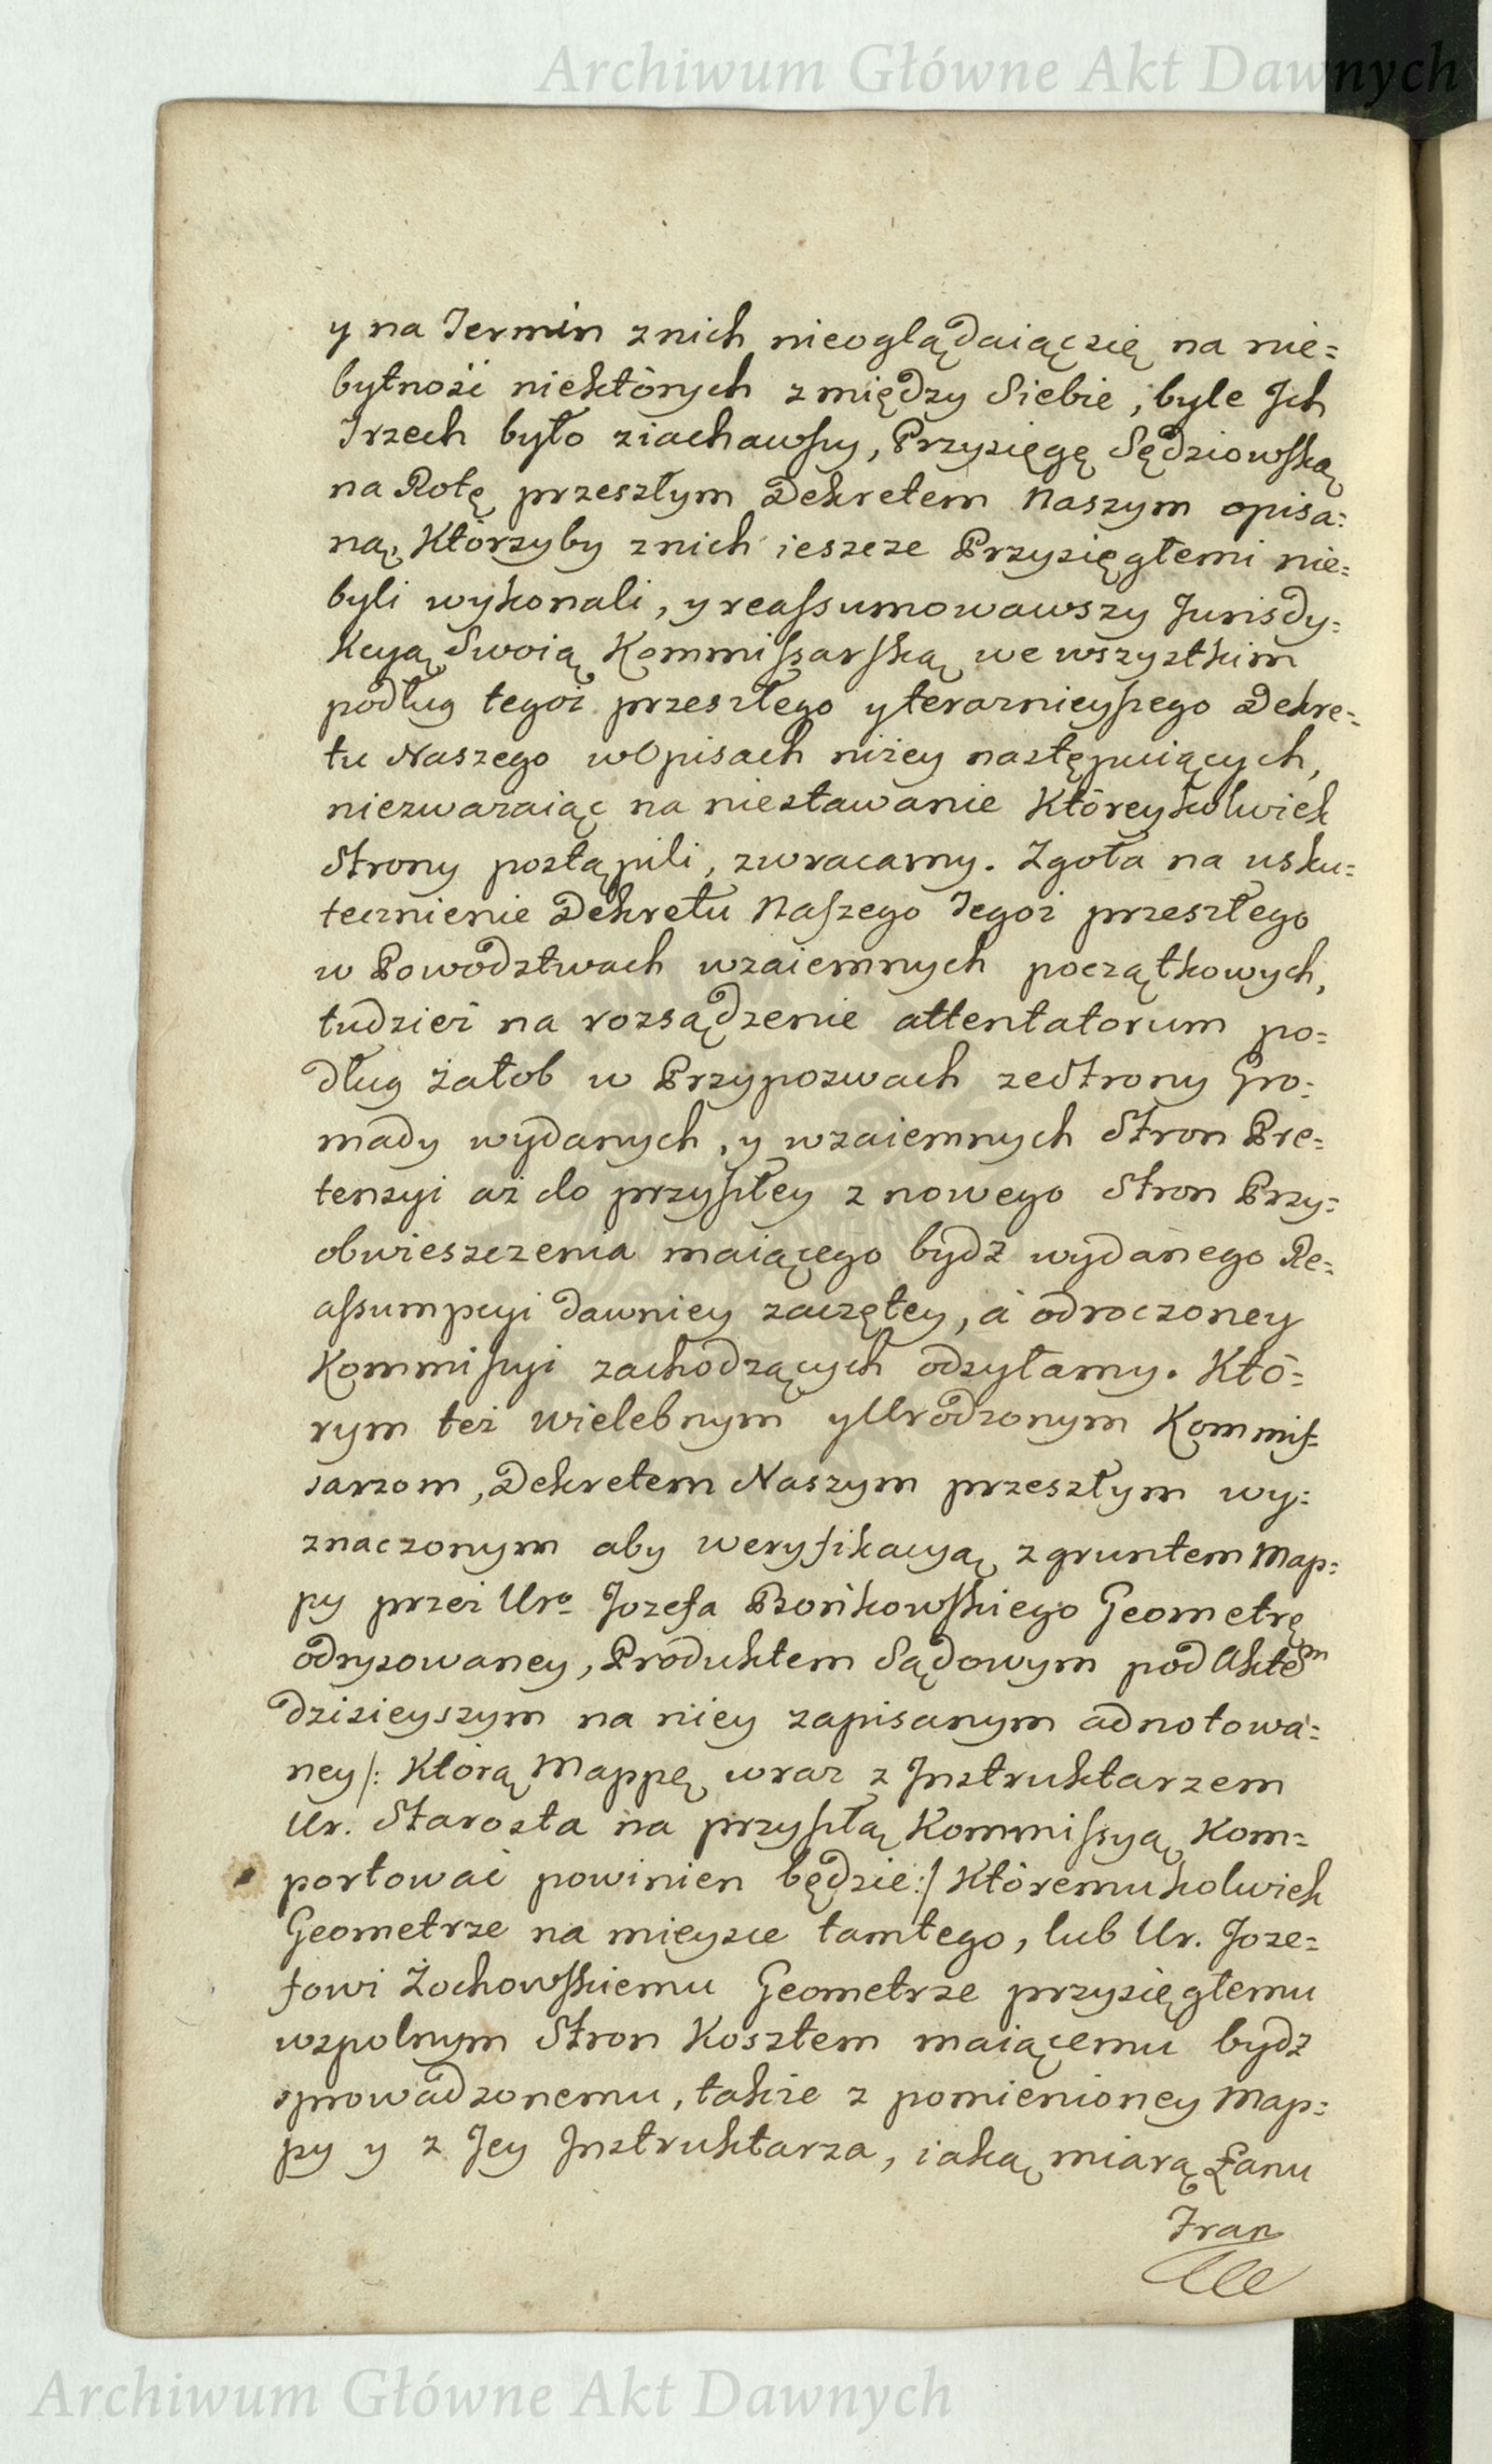 Archiwum Główne Akt Dawnych
y na Termin z nich nieoglądaiąc się na nie=
bytność niektórych z między Siebie, byle Ich
Trzech było ziachawszy, Przysięgę Sędziowską
na Rotę przeszłym Dekretem Naszym opisa=
ną, Którzyby z nich ieszcze Przysięgłemi nie=
byli wykonali, y reassumowawszy Jurisdy=
kcyą Swoią Kommissarską we wszystkim
podług tegoż przeszłego y teraznieyszego Dekre=
tu Naszego w Opisach niżey następuiących,
niezważaiąc na niestawanie Któreykolwiek
Strony postąpili, zwracamy. Zgoła na usku=
tecznienie Dekretu Naszego Tegoż przeszłego
w Powodztwach wzaiemnych początkowych,
tudzież na rozsądzenie attentatorum po=
dług żałob w Przypozwach ze Strony Gro=
mady wydanych, y wzaiemnych Stron Pre=
tensyi aż do przyszłey z nowego Stron Przy=
obwieszczenia maiącego bydź wydanego Re=
assumpcyi dawniey zaczętey, a odroczoney
Kommissyi zachodzących odsyłamy. Któ=
rym też Wielebnym y Urodzonym Kommis=
sarzom, Dekretem Naszym przeszłym wy=
znaczonym aby weryfikacyą z gruntem Map=
py przez Uro Jozefa Bońkowskiego Geometrę
odrysowaney, Produktem Sądowym pod Aktem
dzisieyszym na niey zapisanym adnotowa=
ney /: Którą Mappę wraz z Instruktarzem
Ur. Starosta na przyszłą Kommissyą Kom=
portować powinien będzie :/ Któremukolwiek
Geometrze na mieysce tamtego, lub Ur. Joze=
fowi Żochowskiemu Geometrze przysięgłemu
wspolnym Stron Kosztem maiącemu bydź
sprowadzonemu, także z pomienioney Map=
py y z Jey Instruktarza, iaką miarą Łanu
Fran
Archiwum Główne Akt Dawnych